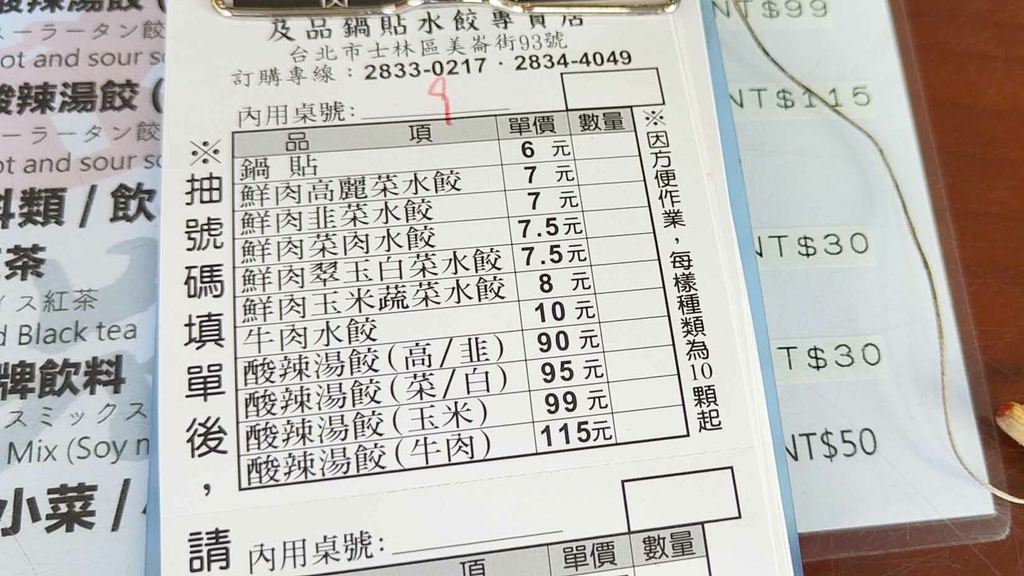 及品鍋貼水餃專賣店
台北市士林區美崙街93號
訂購專線：2833-0217．2834-4049
內用桌號: 9
品 項 單價 數量
鍋 貼 6 元
鮮肉高麗菜水餃 7 元
鮮肉韭菜水餃 7 元
鮮肉菜肉水餃 7.5元
鮮肉翠玉白菜水餃 7.5元
鮮肉玉米蔬菜水餃 8 元
牛肉水餃 10 元
酸辣湯餃(高/韭) 90 元
酸辣湯餃(菜/白) 95 元
酸辣湯餃(玉米) 99 元
酸辣湯餃(牛肉) 115元
※因方便作業，每樣種類為10顆起
※抽號碼填單後，請
內用桌號:
項 單價 數量
酸辣湯餃(
スーラータン餃
ot and sour
酸辣湯餃 (
ーラータン餃
ot and sour
料類 / 飲
茶
イス紅茶
d Black tea
牌飲料
スミックス
Mix (Soy
小菜 /
NT$99
NT$115
NT$30
T$30
NT$50